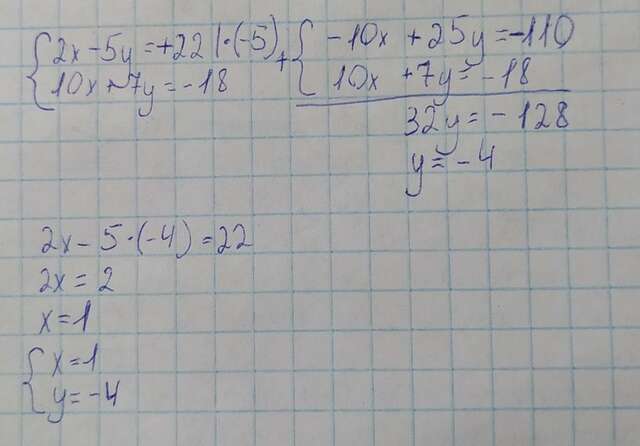 {2x - 5y = +22 | · (-5)
{10x + 7y = -18
+ {-10x + 25y = -110
{10x + 7y = -18
32y = -128
y = -4
2x - 5 · (-4) = 22
2x = 2
x = 1
{x = 1
{y = -4